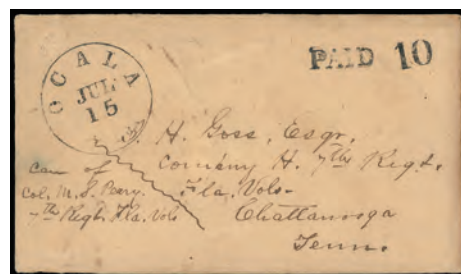 OCALA
JUL
15
PAID 10
H. Goss, Esqr,
Comeény H. 7ths Regt.
Fla. Vols-
Chattanooga
Tenn.
care of
Col. M. S. Perry.
7th Regt. Fla. Vols